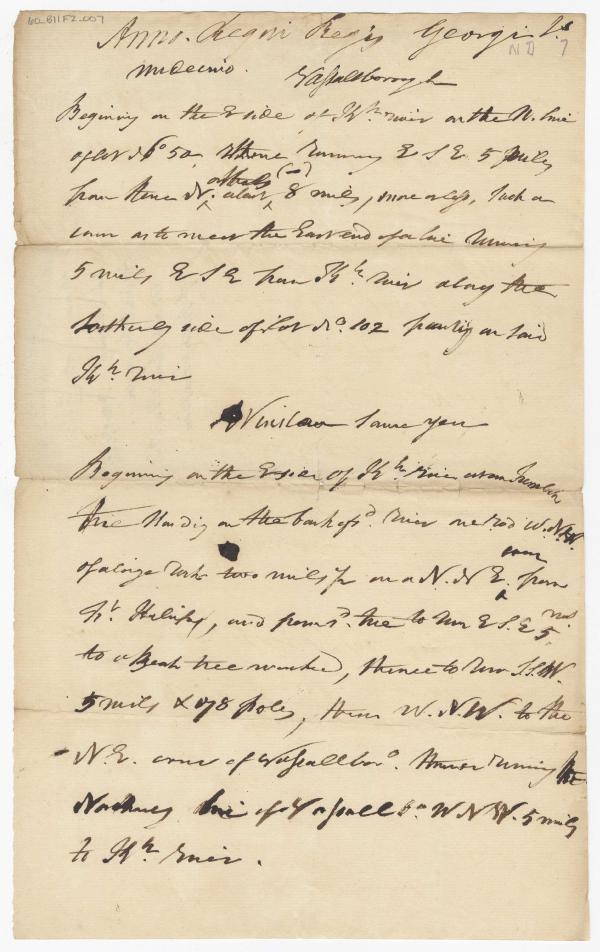 60_B11F2_007
Anno. Regni Regis Georgi
ND 7
undecimo. Vassalsborough
Beginning on the E side of Kh river on the N. line
of lot No 50, thence running E S E 5 miles
from thence N. about 8 miles, more or less, Such a
course as to meet the East end of a line running
5 miles E S E from Kh river along the
Southerly side of Lot No. 102 fronting on said
Kh river
Winslow Same year
Beginning on the E side of Kh river at an Hemlock
tree standing on the bank of sd. river one rod W.N.W.
of a large rock two miles on a N. N E. course from
Ft Halifax, and from sd. tree to run E S. E 5 miles
to a Beach tree marked, thence to run S.S.W.
5 miles & 78 poles, thence W.N.W. to the
N.E. corner of Vassallboro. thence running the
Northerly line of Vassallbo. W N W. 5 miles
to Kh river.